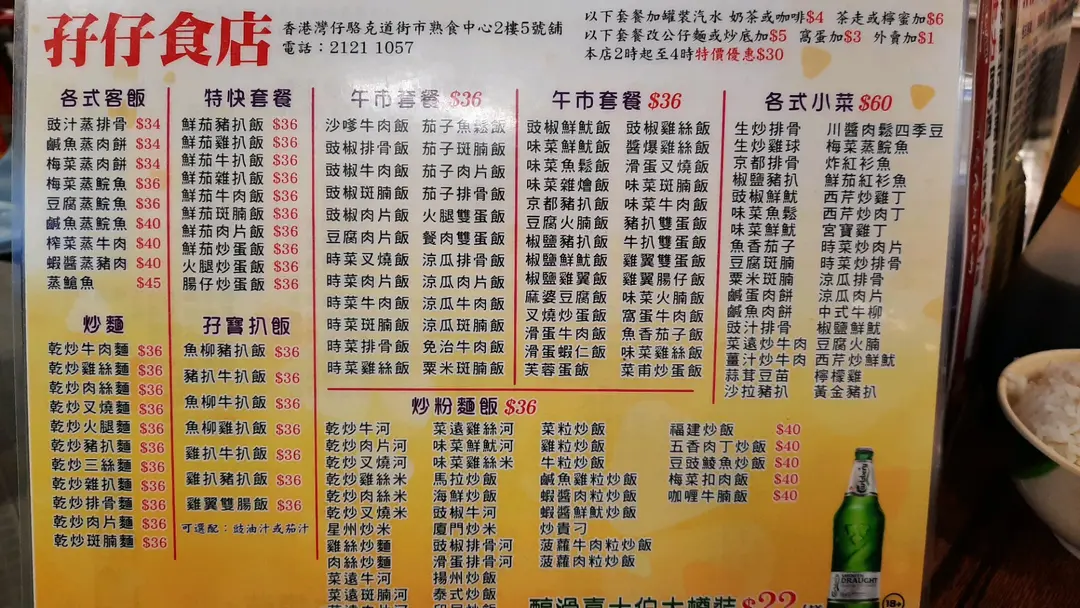 孖仔食店
香港灣仔駱克道街市熟食中心2樓5號舖
電話：2121 1057
以下套餐加罐裝汽水 奶茶或咖啡$4 茶走或檸蜜加$6
以下套餐改公仔麵或炒底加$5 窩蛋加$3 外賣加$1
本店2時起至4時特價優惠$30
各式客飯
豉汁蒸排骨 $34
鹹魚蒸肉餅 $34
梅菜蒸肉餅 $34
梅菜蒸鯇魚 $36
豆腐蒸鯇魚 $36
鹹魚蒸鯇魚 $40
榨菜蒸牛肉 $40
蝦醬蒸豬肉 $40
蒸鱠魚 $45
炒麵
乾炒牛肉麵 $36
乾炒雞絲麵 $36
乾炒肉絲麵 $36
乾炒叉燒麵 $36
乾炒火腿麵 $36
乾炒豬扒麵 $36
乾炒三絲麵 $36
乾炒雜扒麵 $36
乾炒排骨麵 $36
乾炒肉片麵 $36
乾炒斑腩麵 $36
特快套餐
鮮茄豬扒飯 $36
鮮茄雞扒飯 $36
鮮茄牛扒飯 $36
鮮茄雜扒飯 $36
鮮茄牛肉飯 $36
鮮茄斑腩飯 $36
鮮茄肉片飯 $36
鮮茄炒蛋飯 $36
火腿炒蛋飯 $36
腸仔炒蛋飯 $36
孖寶扒飯
魚柳豬扒飯 $36
豬扒牛扒飯 $36
魚柳牛扒飯 $36
魚柳雞扒飯 $36
雞扒牛扒飯 $36
雞扒豬扒飯 $36
雞翼雙腸飯 $36
可選配：豉油汁或茄汁
午市套餐 $36
沙嗲牛肉飯 茄子魚鬆飯
豉椒排骨飯 茄子斑腩飯
豉椒牛肉飯 茄子肉片飯
豉椒斑腩飯 茄子排骨飯
豉椒肉片飯 火腿雙蛋飯
豆腐肉片飯 餐肉雙蛋飯
時菜叉燒飯 涼瓜排骨飯
時菜肉片飯 涼瓜牛肉飯
時菜牛肉飯 涼瓜肉片飯
時菜斑腩飯 涼瓜斑腩飯
時菜排骨飯 免治牛肉飯
時菜雞絲飯 粟米斑腩飯
午市套餐 $36
豉椒鮮魷飯 豉椒雞絲飯
味菜鮮魷飯 醬爆雞絲飯
味菜魚鬆飯 滑蛋叉燒飯
味菜雜燴飯 味菜斑腩飯
京都豬扒飯 味菜牛肉飯
豆腐火腩飯 豬扒雙蛋飯
椒鹽豬扒飯 牛扒雙蛋飯
椒鹽鮮魷飯 雞翼雙蛋飯
椒鹽雞翼飯 雞翼腸仔飯
麻婆豆腐飯 味菜火腩飯
叉燒炒蛋飯 窩蛋牛肉飯
滑蛋牛肉飯 魚香茄子飯
滑蛋蝦仁飯 味菜雞絲飯
芙蓉蛋飯 菜甫炒蛋飯
各式小菜 $60
生炒排骨 川醬肉鬆四季豆
生炒雞球 梅菜蒸鯇魚
京都排骨 炸紅衫魚
椒鹽豬扒 鮮茄紅衫魚
豉椒鮮魷 西芹炒雞丁
味菜魚鬆 西芹炒肉丁
味菜鮮魷 宮寶雞丁
魚香茄子 時菜炒肉片
豆腐斑腩 時菜炒排骨
粟米斑腩 涼瓜排骨
鹹蛋肉餅 涼瓜肉片
鹹魚肉餅 中式牛柳
豉汁排骨 椒鹽鮮魷
菜遠炒牛肉 豆腐火腩
薑汁炒牛肉 西芹炒鮮魷
蒜茸豆苗 檸檬雞
沙拉豬扒 黃金豬扒
炒粉麵飯 $36
乾炒牛河 菜遠雞絲河 菜粒炒飯 福建炒飯 $40
乾炒肉片河 味菜鮮魷河 雞粒炒飯 五香肉丁炒飯 $40
乾炒叉燒河 味菜雞絲米 牛粒炒飯 豆豉鯪魚炒飯 $40
乾炒雞絲米 馬拉炒飯 鹹魚雞粒炒飯 梅菜扣肉飯 $40
乾炒肉絲米 海鮮炒飯 蝦醬肉粒炒飯 咖喱牛腩飯 $40
乾炒叉燒米 豉椒牛河 蝦醬鮮魷炒飯
星州炒米 廈門炒米 炒貴刁
雞絲炒麵 豉椒排骨河 菠蘿牛肉粒炒飯
肉絲炒麵 滑蛋排骨河 菠蘿肉粒炒飯
菜遠牛河 揚州炒飯
菜遠斑腩河 泰式炒飯
Carlsberg
DRAUGHT
18+